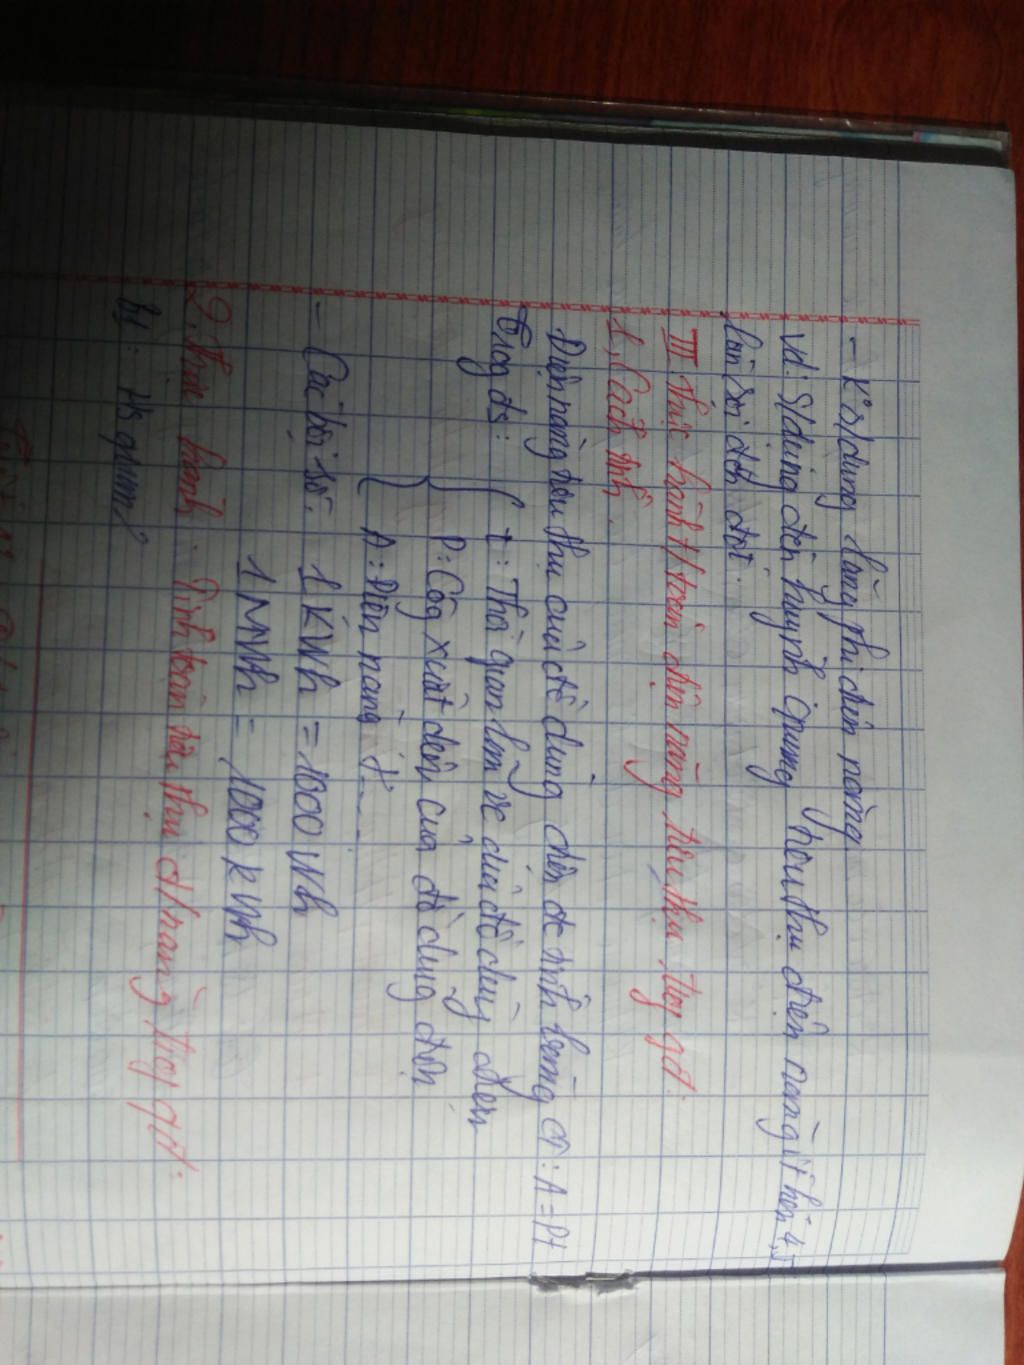 - K° s/dụng lãng phí điện năng.
Vd: S/dụng đèn huỳnh quang tiêu thụ điện năng ít hơn 4,5
lần so đèn đốt.
III Thực hành t/toán điện năng tiêu thụ trog gđ.
1, Cách tính.
Điện năng tiêu thụ của đồ dùng điện đc tính bằng ct: A = Pt
trog đó: { t: Thời gian làm vc của đồ dùng điện
P: Côg xuất điện của đồ dùng điện
A: Điện năng t'....
- Các bội số: 1 KWh = 1000 Wh
1 MWh = 1000 kWh
2, Thực hành. Tính toán tiêu thụ đ/năng trog gđ.